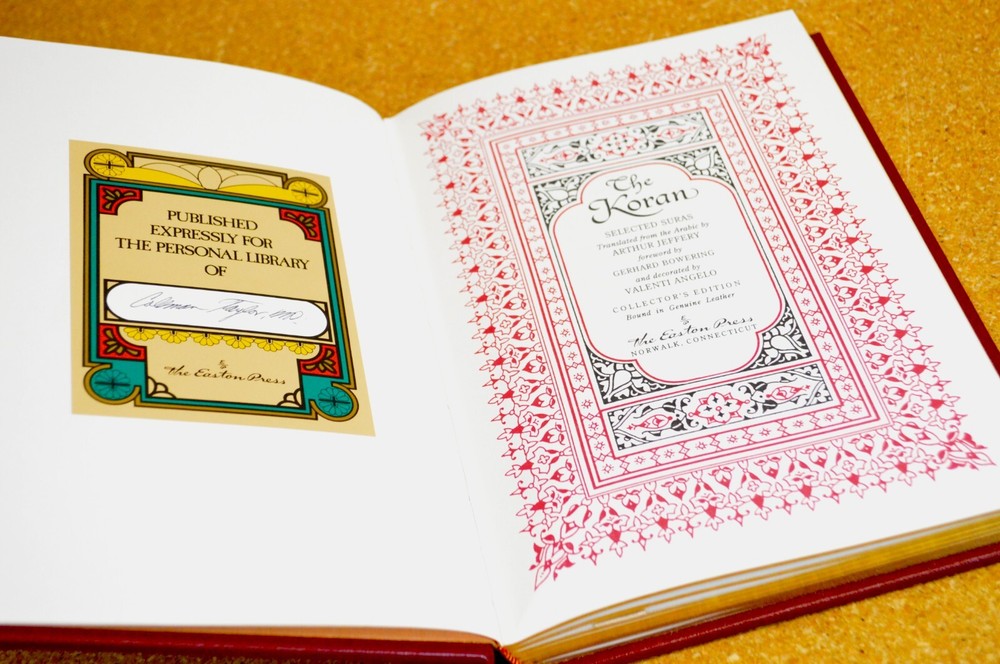 PUBLISHED
EXPRESSLY FOR
THE PERSONAL LIBRARY
OF
Coleman Taylor, MD.
The Easton Press
The
Koran
SELECTED SURAS
Translated from the Arabic by
ARTHUR JEFFERY
foreword by
GERHARD BOWERING
and decorated by
VALENTI ANGELO
COLLECTOR'S EDITION
Bound in Genuine Leather
The Easton Press
NORWALK, CONNECTICUT